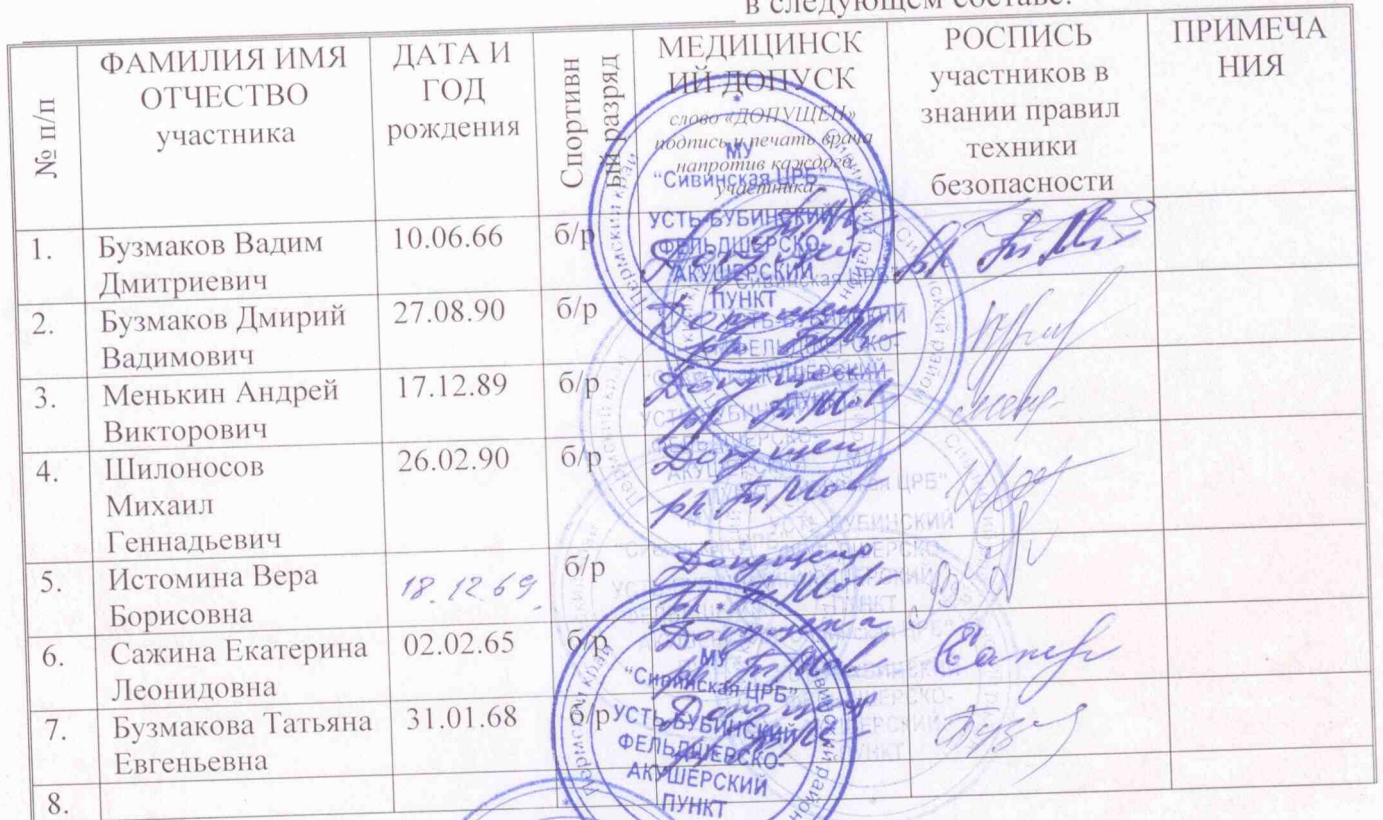 в следующем составе:
№ п/п
ФАМИЛИЯ ИМЯ
ОТЧЕСТВО
участника
ДАТА И
ГОД
рождения
Спортивн
ый разряд
МЕДИЦИНСК
ИЙ ДОПУСК
слово «ДОПУЩЕН»
подпись и печать врача
напротив каждого
участника
РОСПИСЬ
участников в
знании правил
техники
безопасности
ПРИМЕЧА
НИЯ
1.
Бузмаков Вадим
Дмитриевич
10.06.66
б/р
Допущен
2.
Бузмаков Дмирий
Вадимович
27.08.90
б/р
Допущен
3.
Менькин Андрей
Викторович
17.12.89
б/р
Допущен
4.
Шилоносов
Михаил
Геннадьевич
26.02.90
б/р
Допущен
5.
Истомина Вера
Борисовна
18.12.69.
б/р
Допущена
6.
Сажина Екатерина
Леонидовна
02.02.65
б/р
Допущена
7.
Бузмакова Татьяна
Евгеньевна
31.01.68
б/р
Допущена
8.
МУ
"Сивинская ЦРБ"
УСТЬ-БУБИНСКИЙ
ФЕЛЬДШЕРСКО-
АКУШЕРСКИЙ
ПУНКТ
Пермский край
Сивинский район
МУ
"Сивинская ЦРБ"
УСТЬ-БУБИНСКИЙ
ФЕЛЬДШЕРСКО-
АКУШЕРСКИЙ
ПУНКТ
Пермский край
Сивинский район